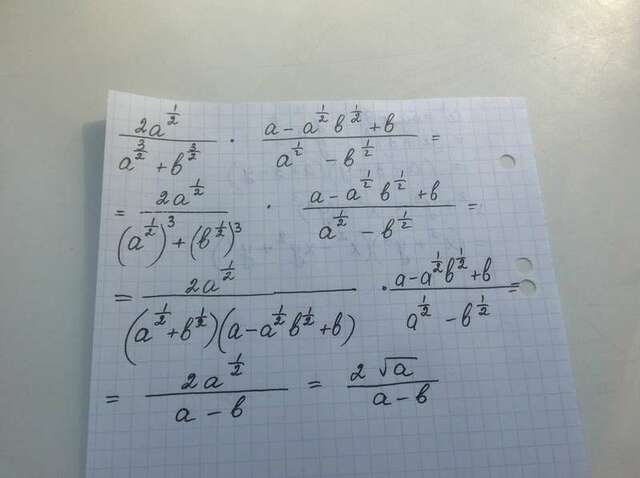 \frac{2a^{\frac{1}{2}}}{a^{\frac{3}{2}} + в^{\frac{3}{2}}} · \frac{a - a^{\frac{1}{2}} в^{\frac{1}{2}} + в}{a^{\frac{1}{2}} - в^{\frac{1}{2}}} =
= \frac{2a^{\frac{1}{2}}}{(a^{\frac{1}{2}})^3 + (в^{\frac{1}{2}})^3} · \frac{a - a^{\frac{1}{2}} в^{\frac{1}{2}} + в}{a^{\frac{1}{2}} - в^{\frac{1}{2}}} =
= \frac{2a^{\frac{1}{2}}}{(a^{\frac{1}{2}} + в^{\frac{1}{2}})(a - a^{\frac{1}{2}} в^{\frac{1}{2}} + в)} · \frac{a - a^{\frac{1}{2}} в^{\frac{1}{2}} + в}{a^{\frac{1}{2}} - в^{\frac{1}{2}}} =
= \frac{2a^{\frac{1}{2}}}{a - в} = \frac{2\sqrt{a}}{a - в}